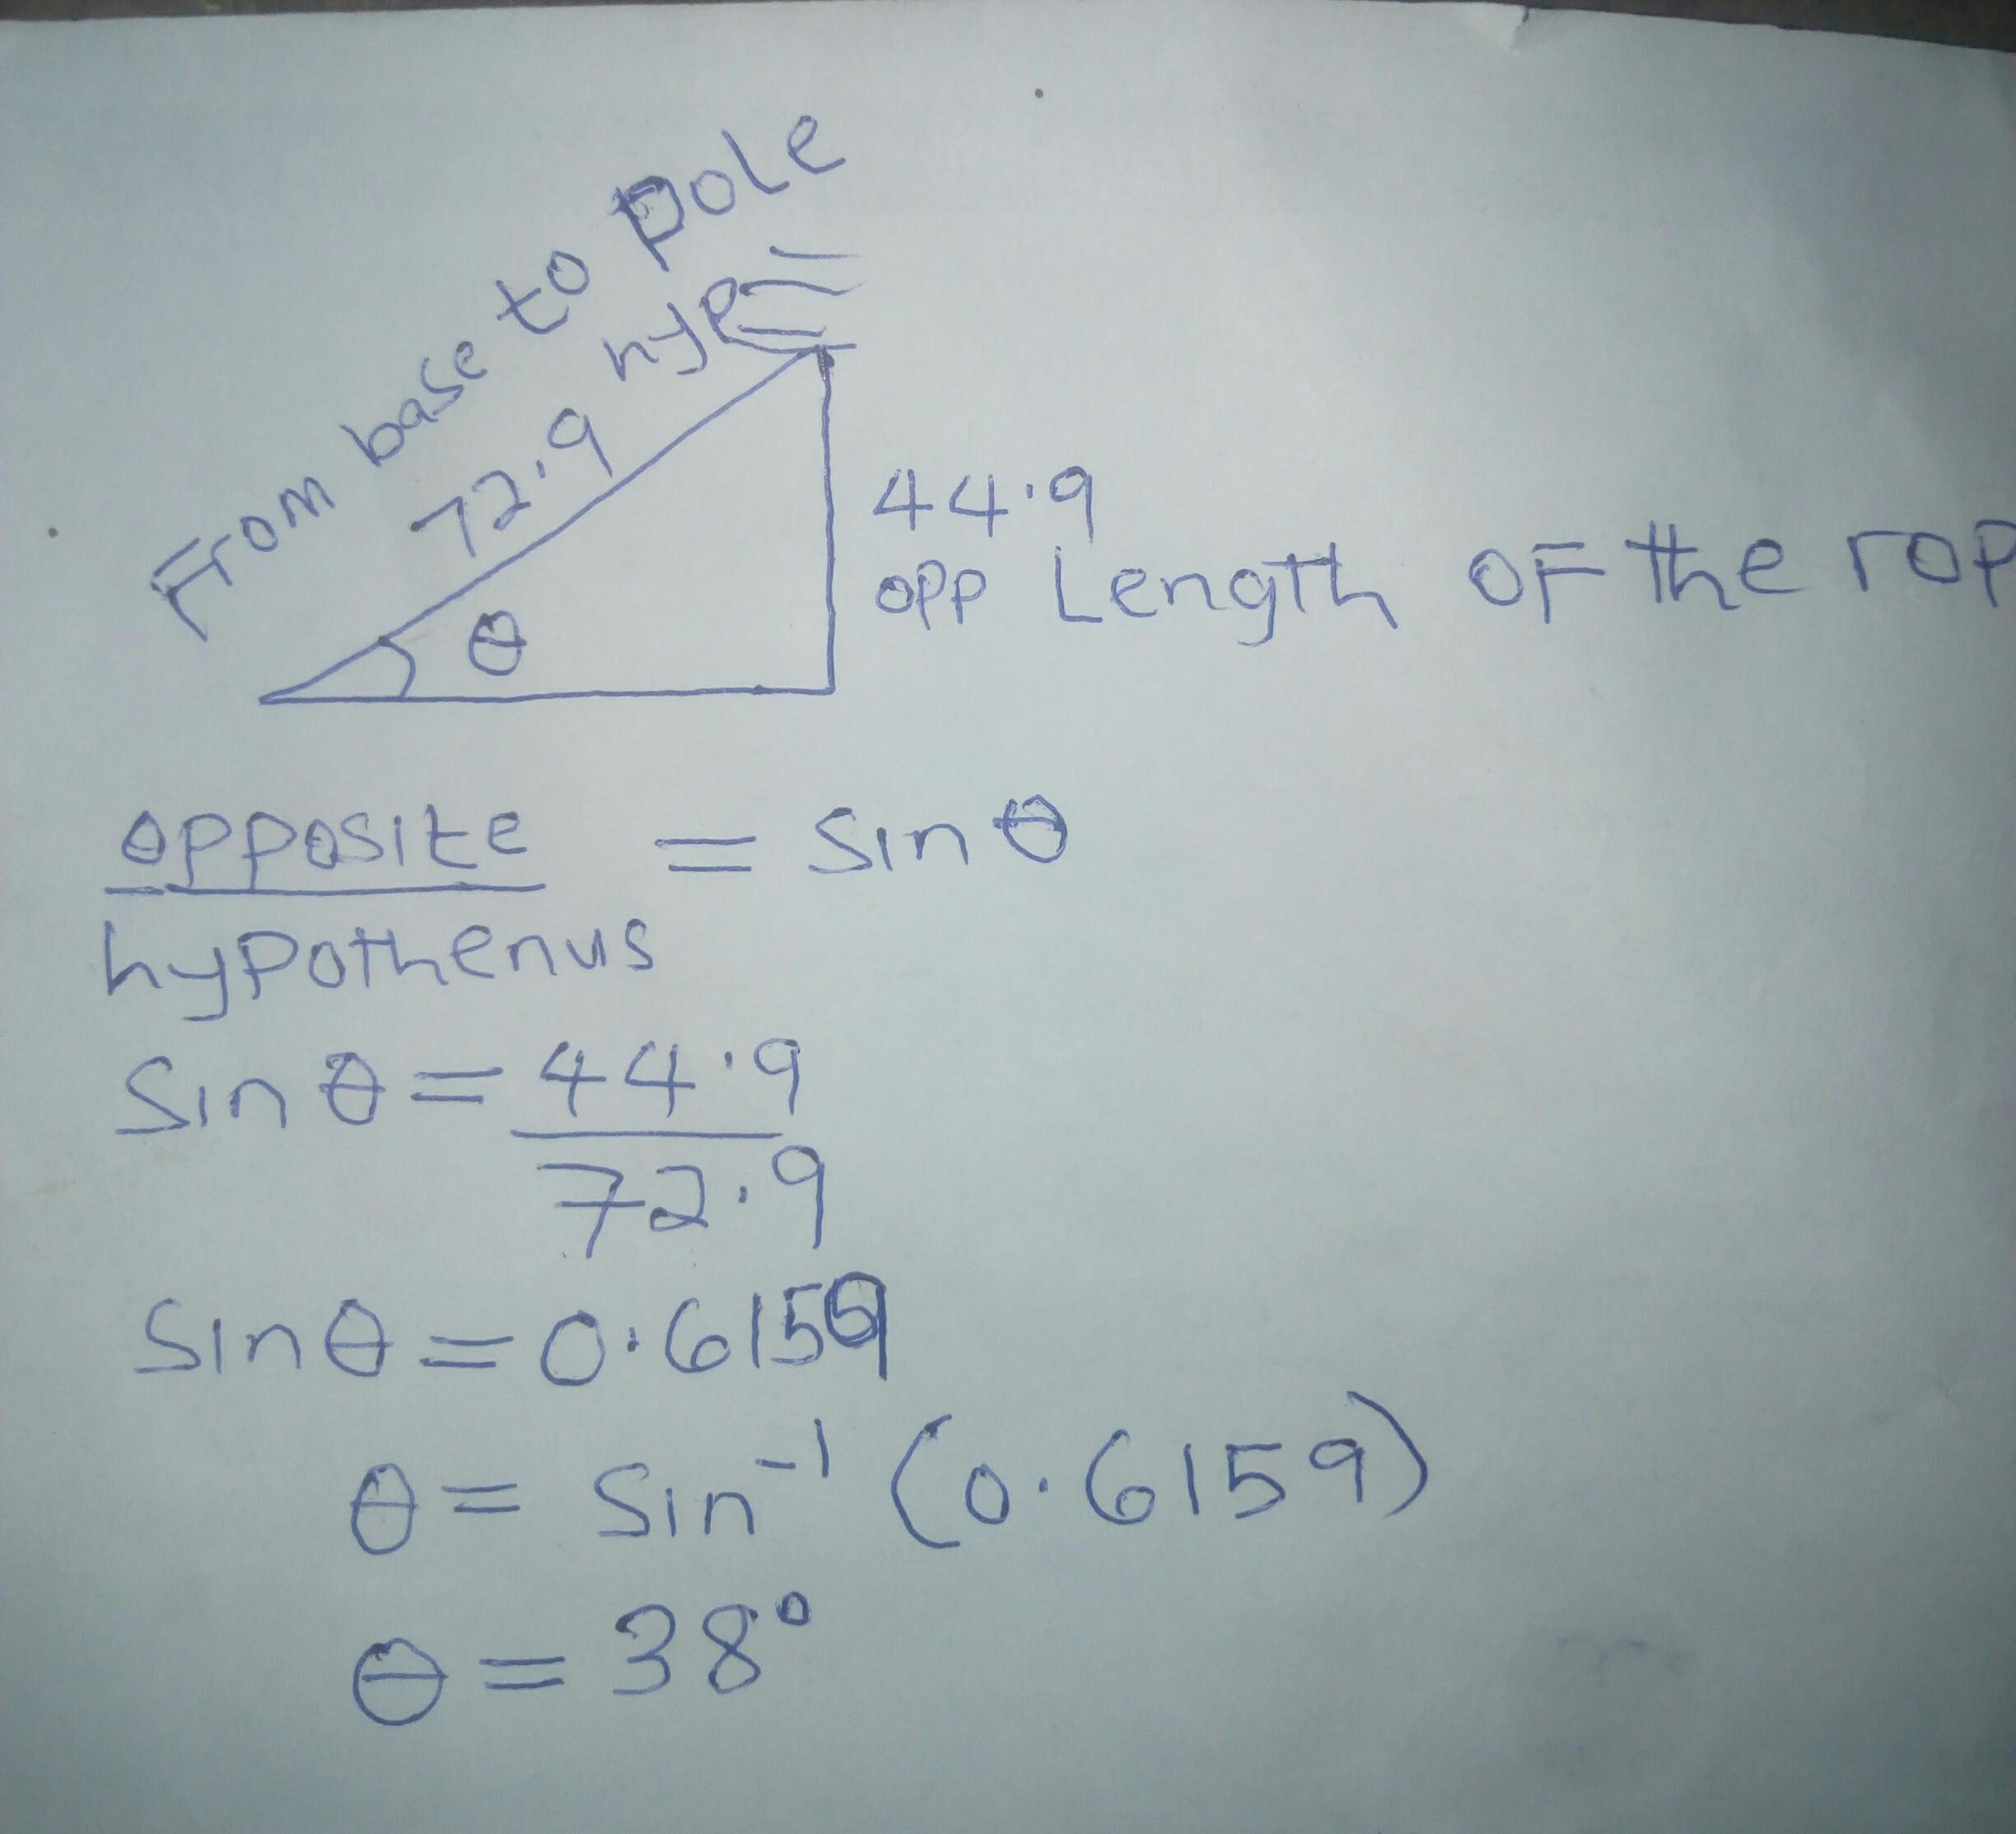 From base to pole
72.9 hyp
44.9
opp Length OF the rop
θ
opposite = Sin θ
hypothenus
Sin θ = 44.9
72.9
Sin θ = 0.6159
θ = Sin⁻¹ (0.6159)
θ = 38°